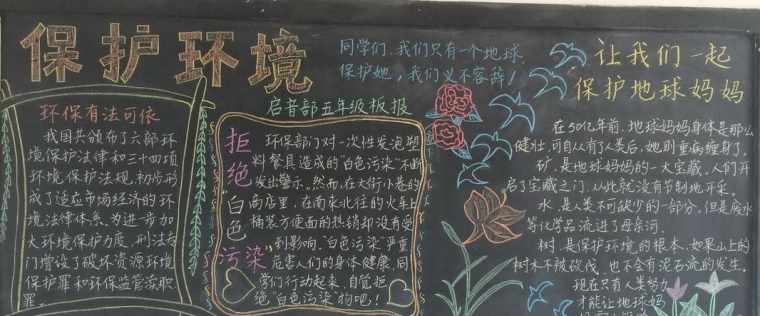 保护环境
同学们，我们只有一个地球，
保护她，我们义不容辞！
启音部五年级板报
让我们一起
保护地球妈妈
环保有法可依
我国共颁布了六部环
境保护法律和三十四项
环境保护法规，初步形
成了适应市场经济的环
境法律体系。为进一步加
大环境保护力度，刑法专
门增设了破坏资源环境
保护罪和环保监管渎职
罪。
拒绝白色污染
环保部门对一次性发泡塑
料餐具造成的“白色污染”不断
发出警示。然而，在大街小巷的
商店里，在南来北往的火车上，
桶装方便面的热销却没有受
到影响。“白色污染”严重
危害人们的身体健康，同
学们行动起来，自觉拒
绝“白色污染”物吧！
在50亿年前，地球妈妈身体是那么
健壮，可自从有了人类后，她则重病缠身了。
矿，是地球妈妈的一大宝藏，人们开
启了宝藏之门，从此就没有节制地开采。
水，是人类不可缺少的一部分，但是废水
等化学品流进了母亲河。
树，是保护环境的根本，如果山上的
树木不被砍伐，也不会有泥石流的发生。
现在只有人类努力
才能让地球妈